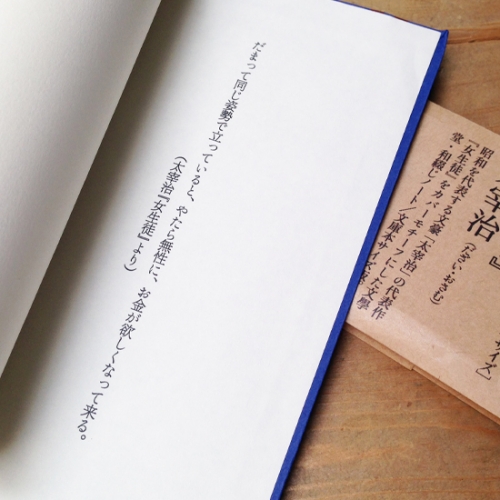 だまって同じ姿勢で立っていると、やたら無性に、お金が欲しくなって来る。
(太宰治『女生徒』より)
宰治
』
(だざい・おさむ)
昭和を代表する文豪「太宰治」の代表作
『女生徒』をカバーモチーフにした文學
堂・和綴じノート
文庫本サイズ
サイズ】